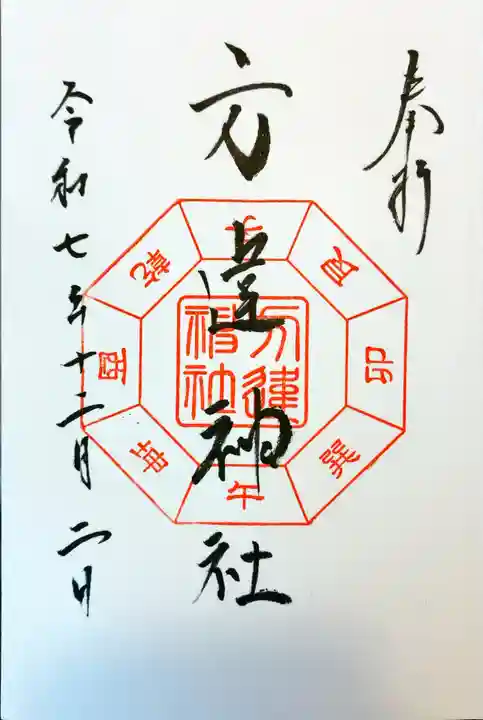 奉拝
方違神社
令和七年十二月二日
方違神社
艮
卯
巽
午
坤
酉
乾